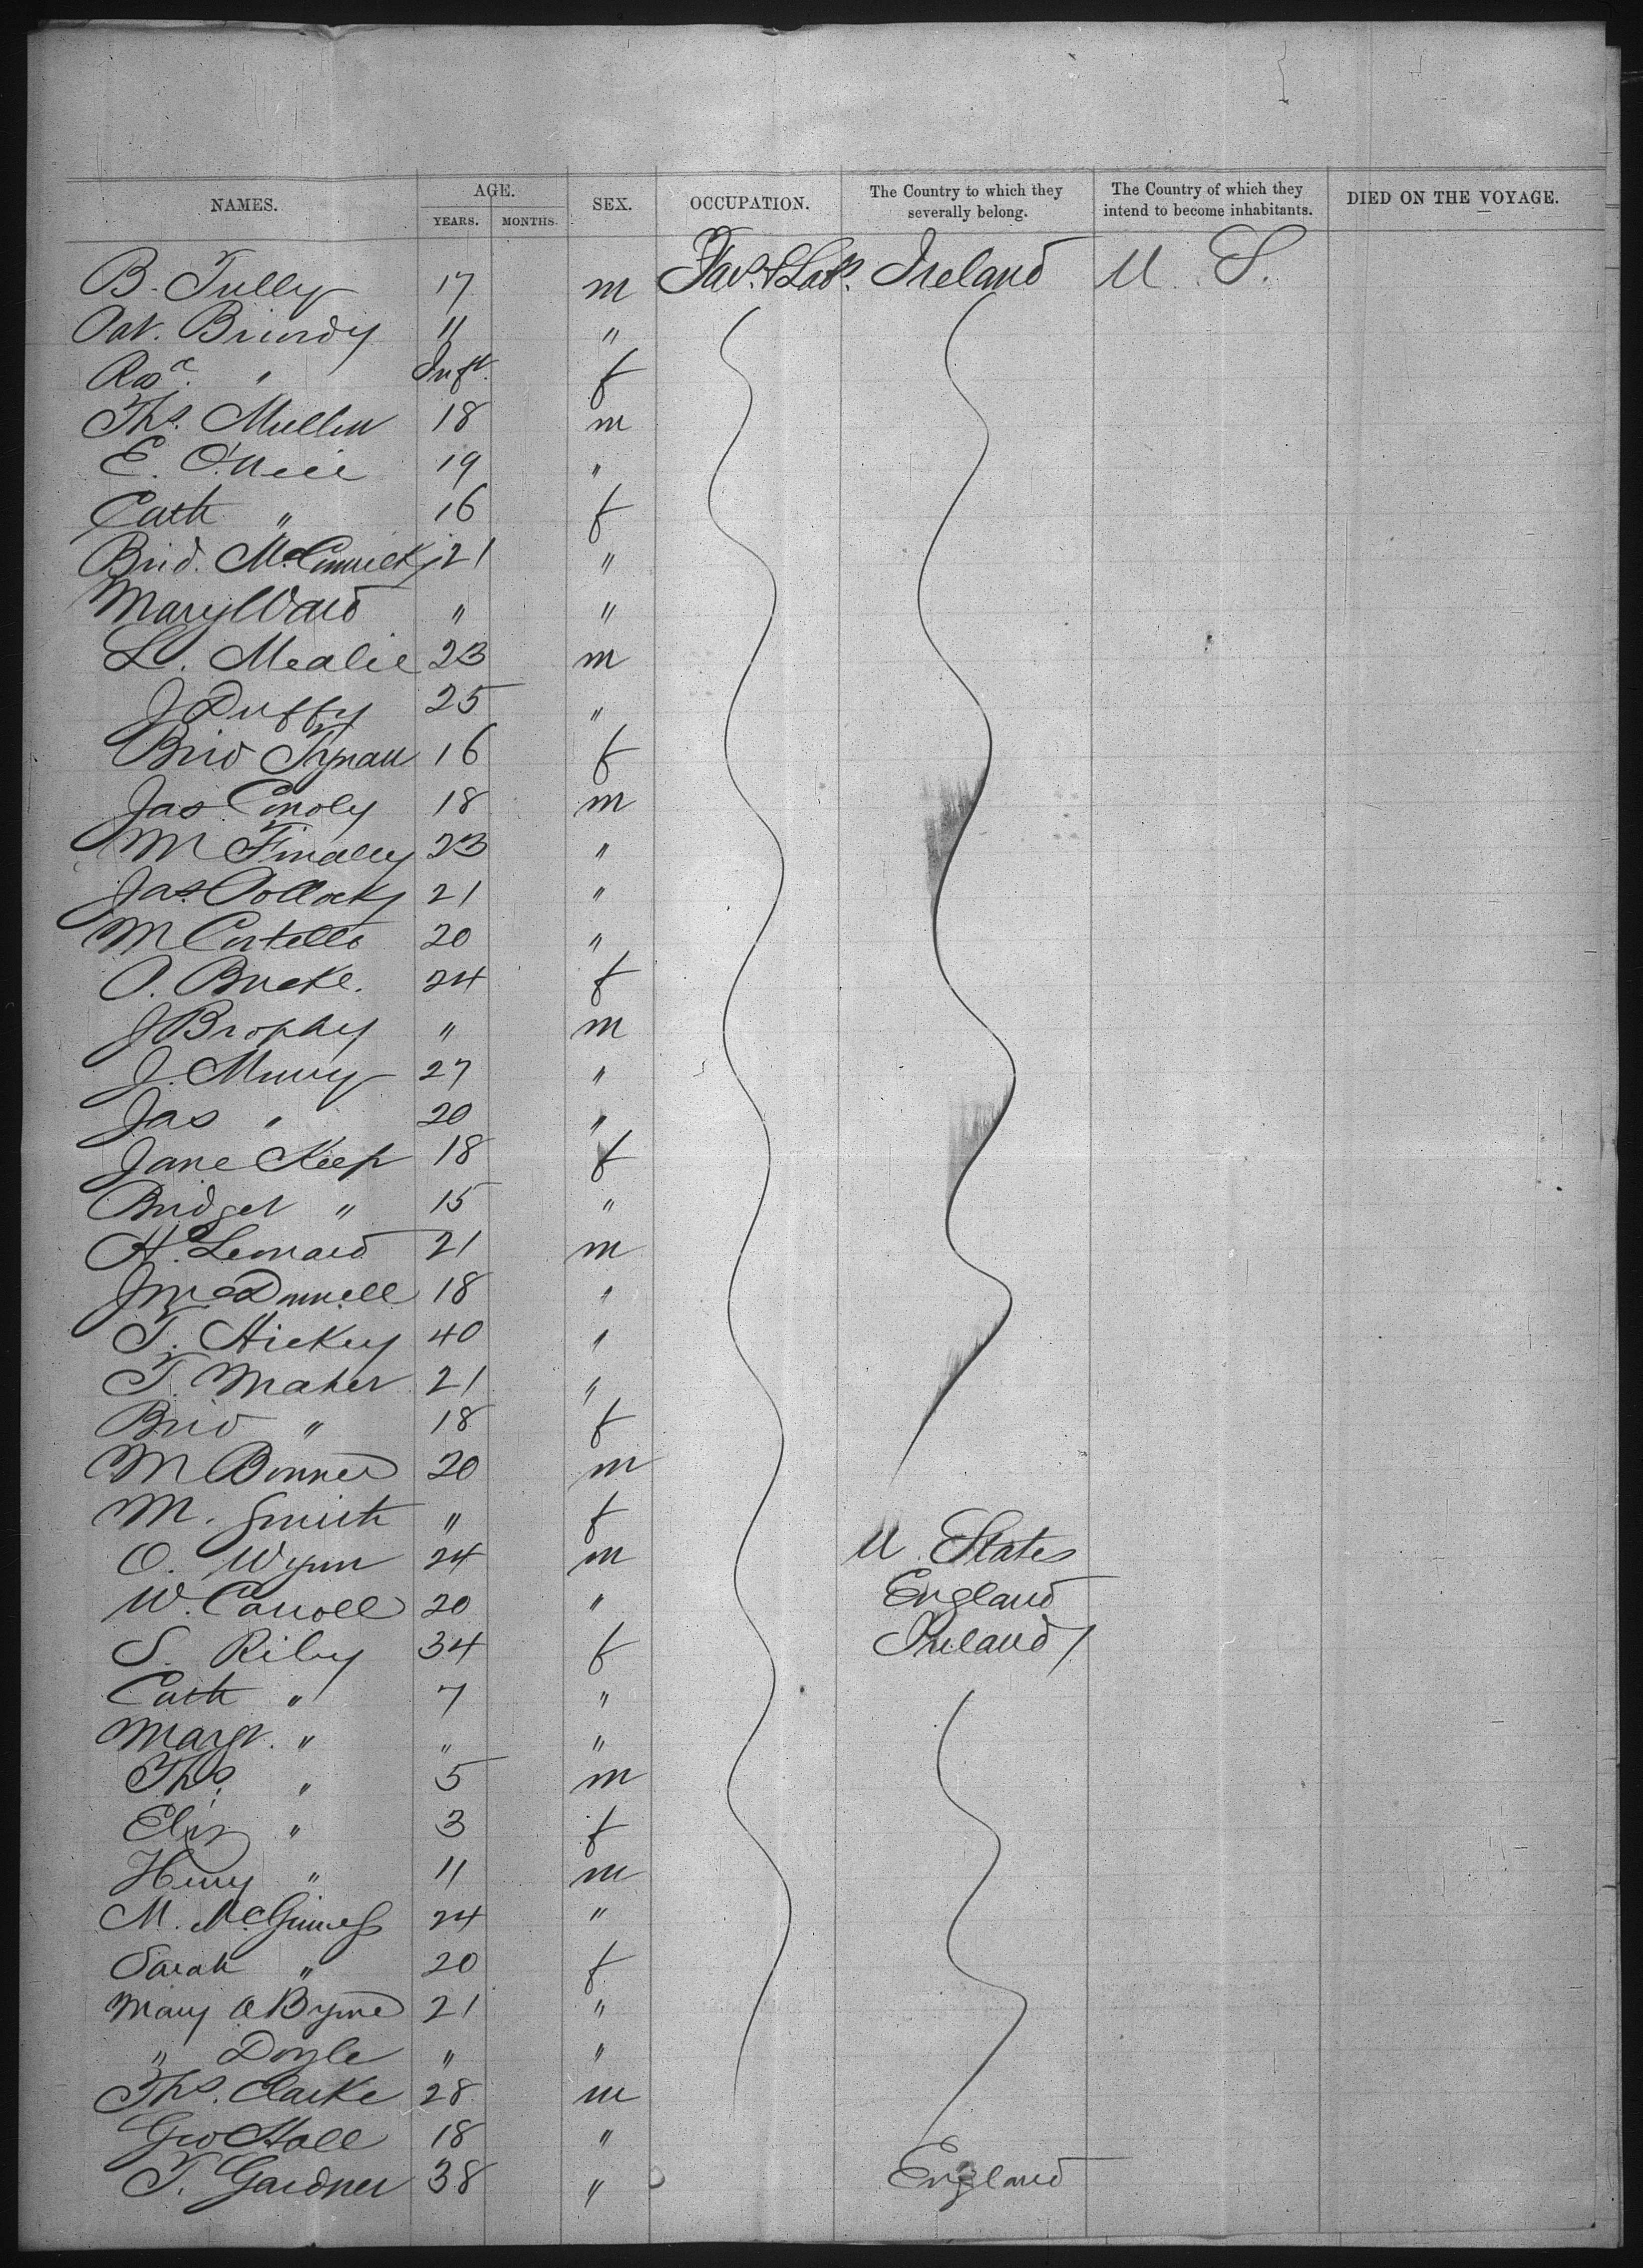 NAMES. AGE. YEARS. MONTHS. SEX. OCCUPATION. The Country to which they severally belong. The Country of which they intend to become inhabitants. DIED ON THE VOYAGE.
B. Tully 17 m Far. & Lab. Ireland U. S.
Pat. Briordy 11 "
Rose " Inft. f
Ths. Mullen 18 m
E. O'Neil 19 "
Cath " 16 f
Brid. McCormick 21 "
Mary Ward " "
L. Mealie 23 m
J Duffy 25 "
Brid Tynan 16 f
Jas Conoly 18 m
M Finally 23 "
Jas. Pollock 21 "
M Costello 20 "
P. Burke. 24 f
J Brophy " m
J. Murry 27 "
Jas " 20 "
Jane Keep 18 f
Bridget " 15 "
H. Lennard 21 m
J McDonnell 18 "
T. Hickey 40 "
T. Maher 21 "
Brid " 18 f
M Bonner 20 m
M. Smith " f
O. Wynn 24 m U. States
W. Carroll 20 " England
S. Riley 34 f Ireland
Cath " 7 "
Margt. " " "
Ths. " 5 m
Eliz " 3 f
Henry " 11 m
M. McGinness 24 "
Sarah " 20 f
Mary O Byrne 21 "
" Doyle " "
Ths. Clarke 28 m
Geo Hall 18 "
T. Gardner 38 " England